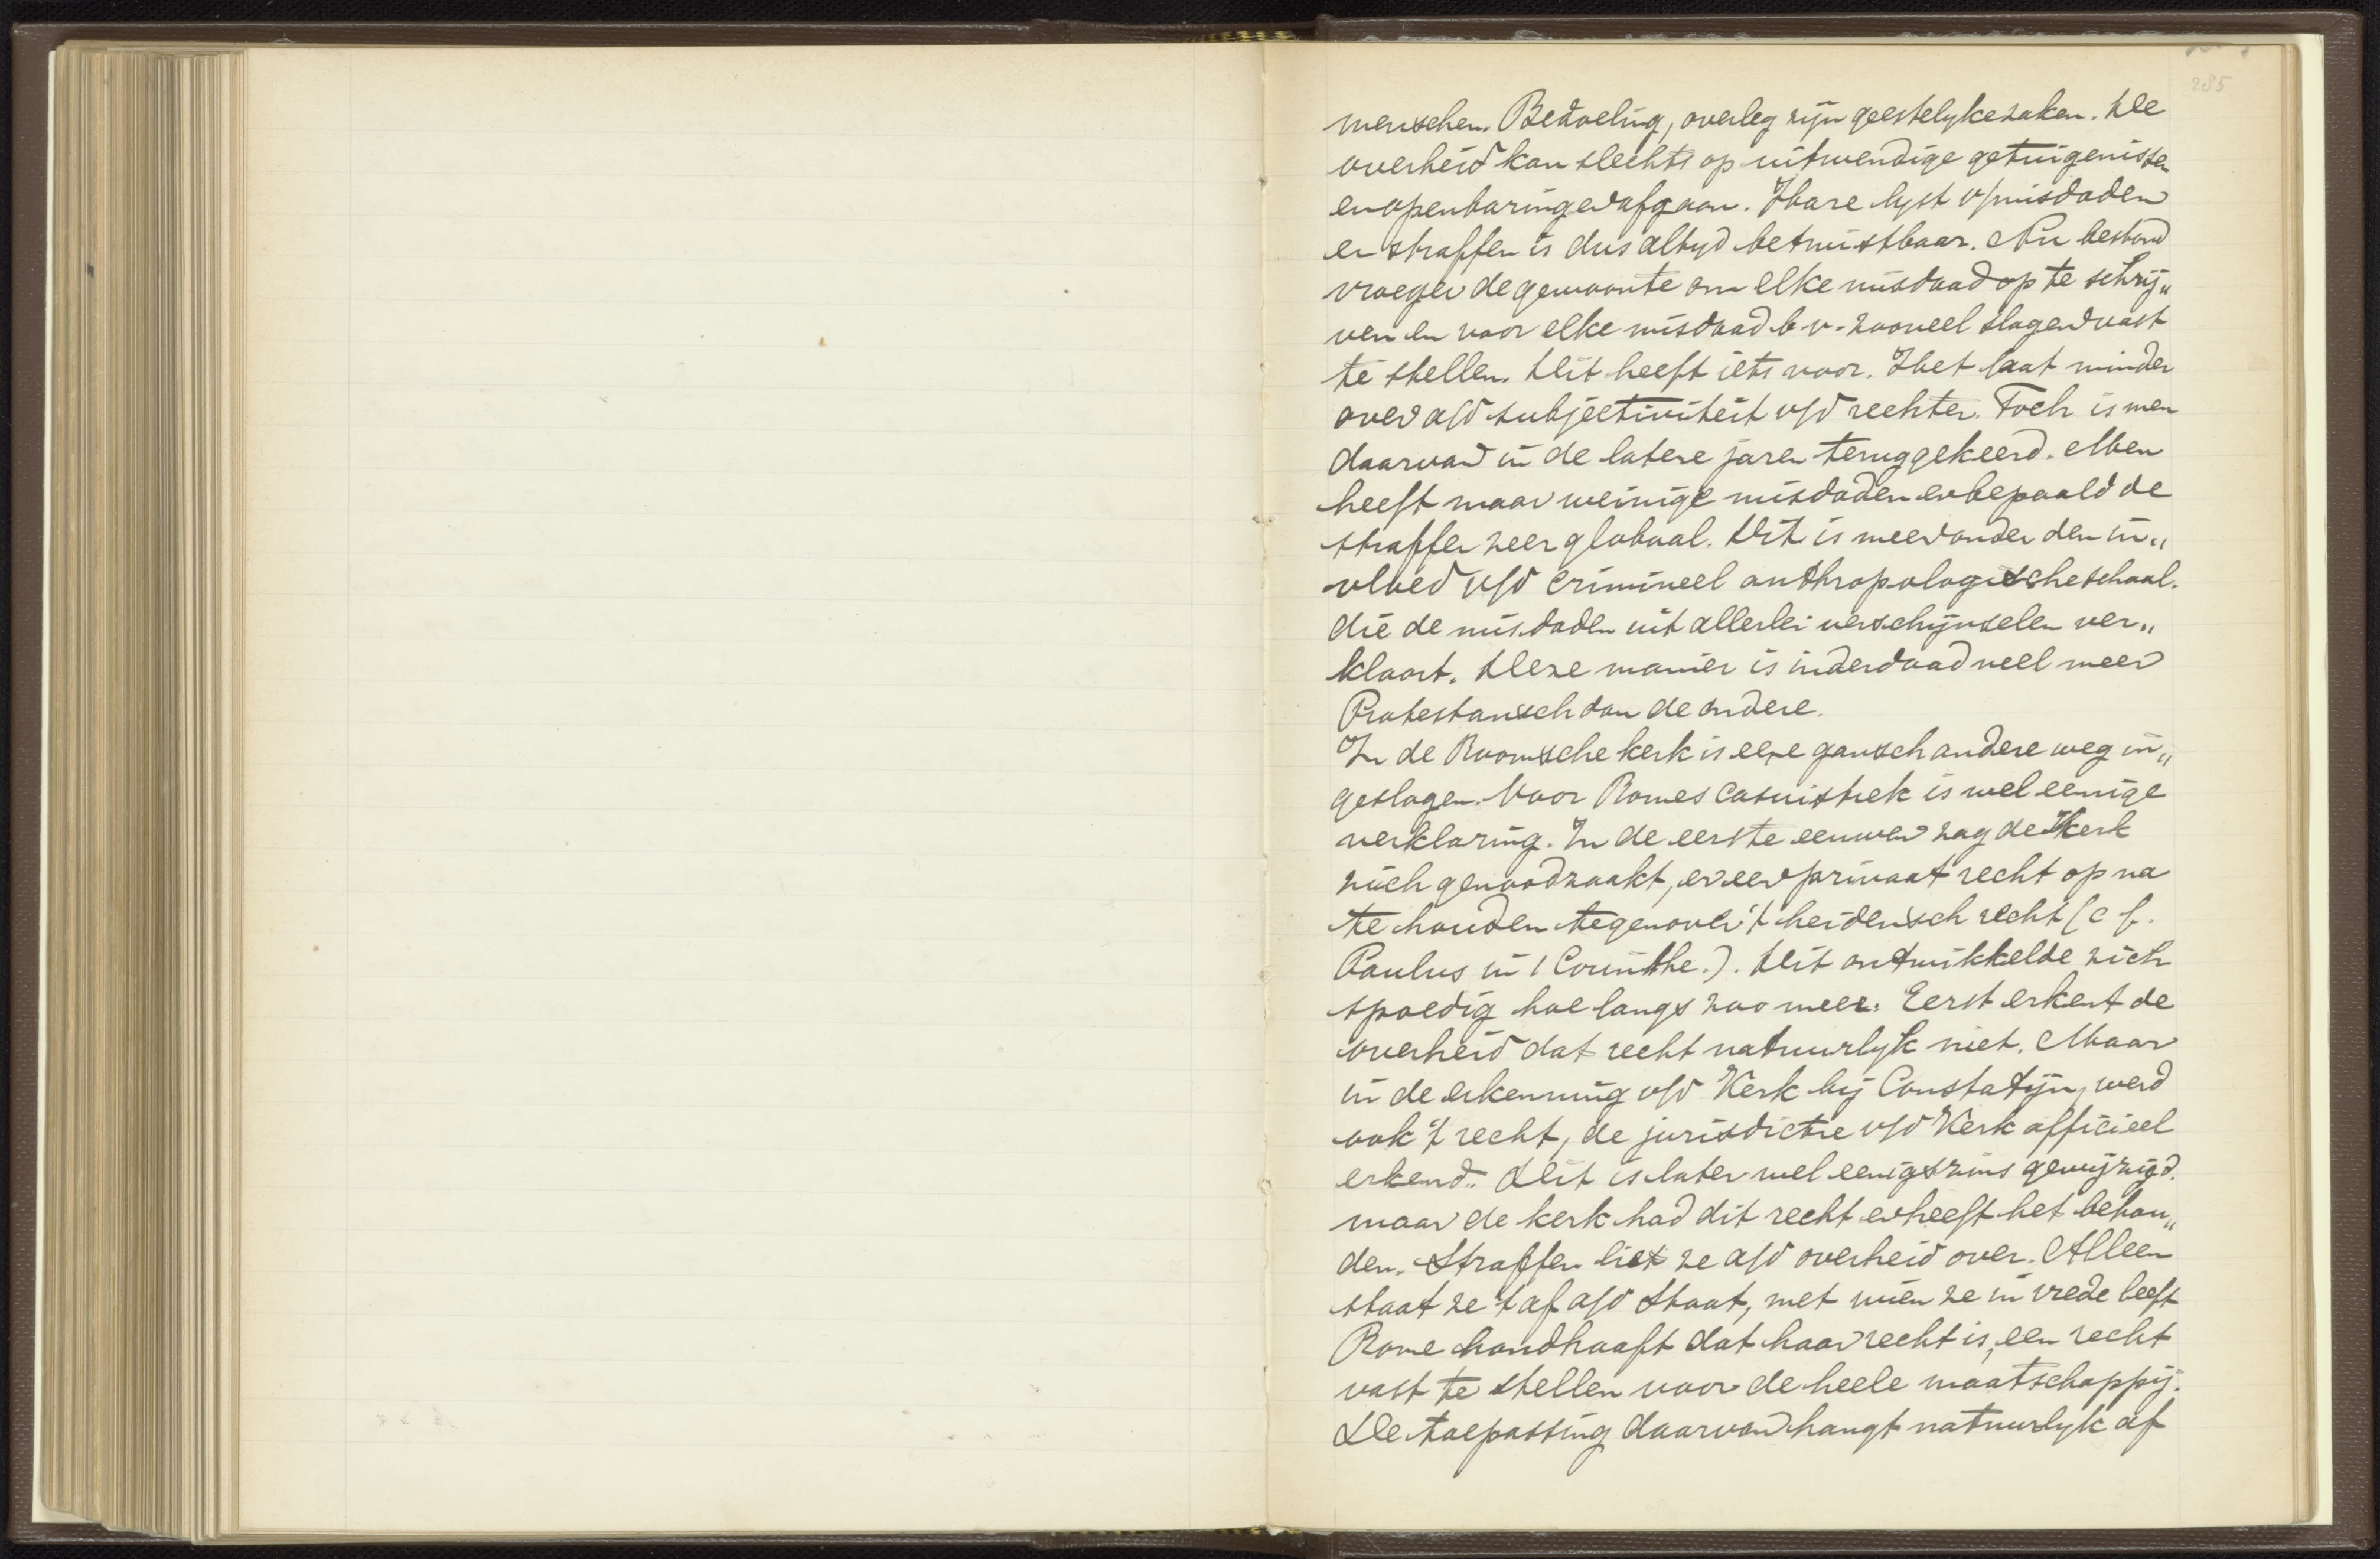 285
menschen. Bedoeling, overleg zijn geestelyke zaken. De
overheid kan slechts op uitwendige getuigenissen
en openbaringen afgaan. Hare lyst v/misdaden
en straffen is dus altyd betwistbaar. Nu bestond
vroeger de gewoonte om elke misdaad op te schrij„
ven en voor elke misdaad b.v. zooveel slagen vast
te stellen. Dit heeft iets voor. Het laat minder
over a/d subjectiviteit v/d rechter. Toch is men
daarvan in de latere jaren teruggekeerd. Men
heeft maar weinige misdaden en bepaald de
straffen zeer globaal. Dit is meer onder den in„
vloed v/d crimineel anthropologische school.
die de misdaden uit allerlei verschijnselen ver„
klaart. Deze manier is inderdaad veel meer
Protestansch dan de andere.
In de Roomsche kerk is eene gansch andere weg in„
geslagen. Voor Romes casuistiek is wel eenige
verklaring. In de eerste eeuwen zag de Kerk
zich genoodzaakt, er een privaat recht op na
te houden tegenover 't heidensch recht (cf.
Paulus in 1 Corinthe.). Dit ontwikkelde zich
spoedig hoe langs zoo meer. Eerst erkent de
overheid dat recht natuurlyk niet. Maar
in de erkenning v/d Kerk bij Constatijn, werd
ook 't recht, de jurisdictie v/d Kerk officieel
erkend. Dit is later wel eenigszins gewijzigd.
maar de kerk had dit recht en heeft het behou„
den. Straffen liet ze a/d overheid over. Alleen
staat ze 't af a/d Staat, met wien ze in vrede leeft
Rome handhaaft dat haar recht is, een recht
vast te stellen voor de heele maatschappij.
De toepassing daarvan hangt natuurlyk af